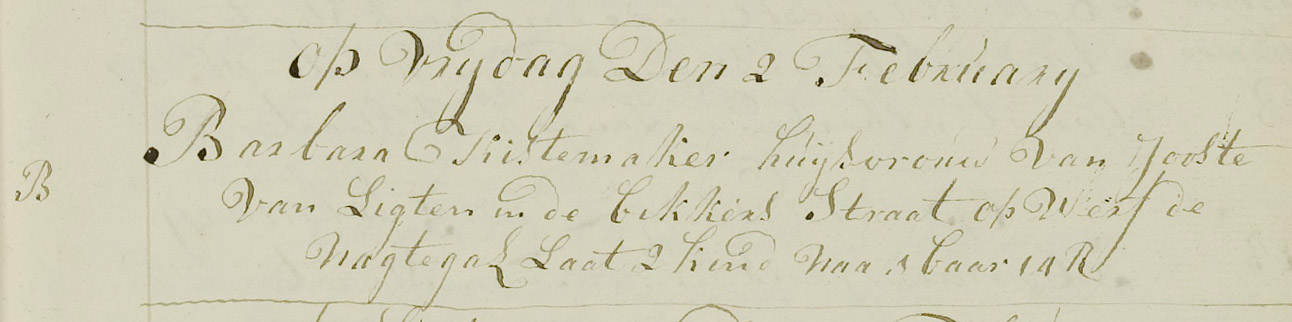 op Vrydag Den 2 February
Barbara Kistemaker huijsvrouw van Jooste
B
van Ligten in de bikkers Straat op Werf de
Nagtegal Laat 2 kind naa 1 baar 14 R